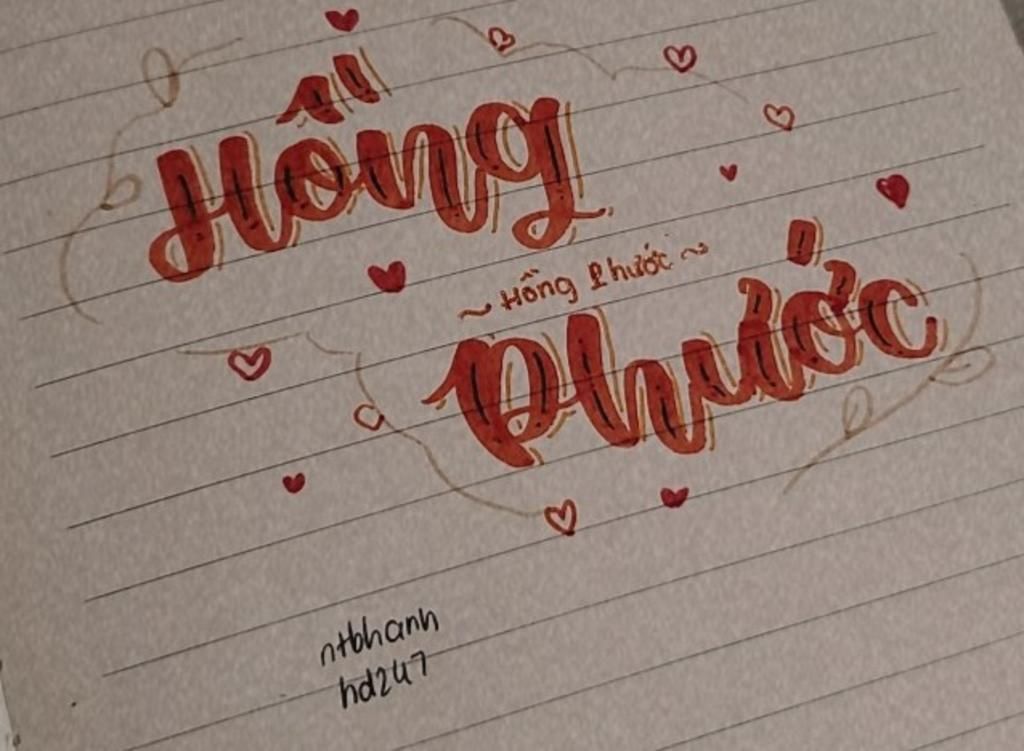 Hồng
~ Hồng Phước ~
Phước
ntbhanh
hd247